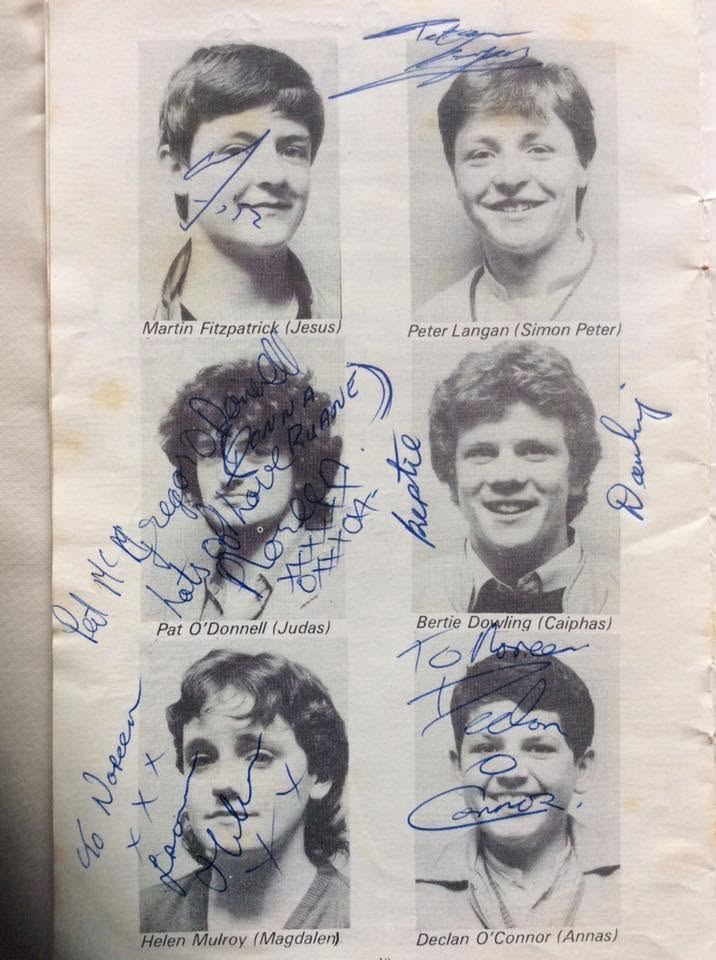 Peter
Langan
Martin Fitzpatrick (Jesus)
Peter Langan (Simon Peter)
Pat McGregor O'Donnell
Lots of Love
DONNA
RUANE
Bertie
Dowling
Pat O'Donnell (Judas)
Bertie Dowling (Caiphas)
To Noreen
x x x
Love
Helen
x x x
To Noreen
Declan
O
Connor.
Helen Mulroy (Magdalen)
Declan O'Connor (Annas)